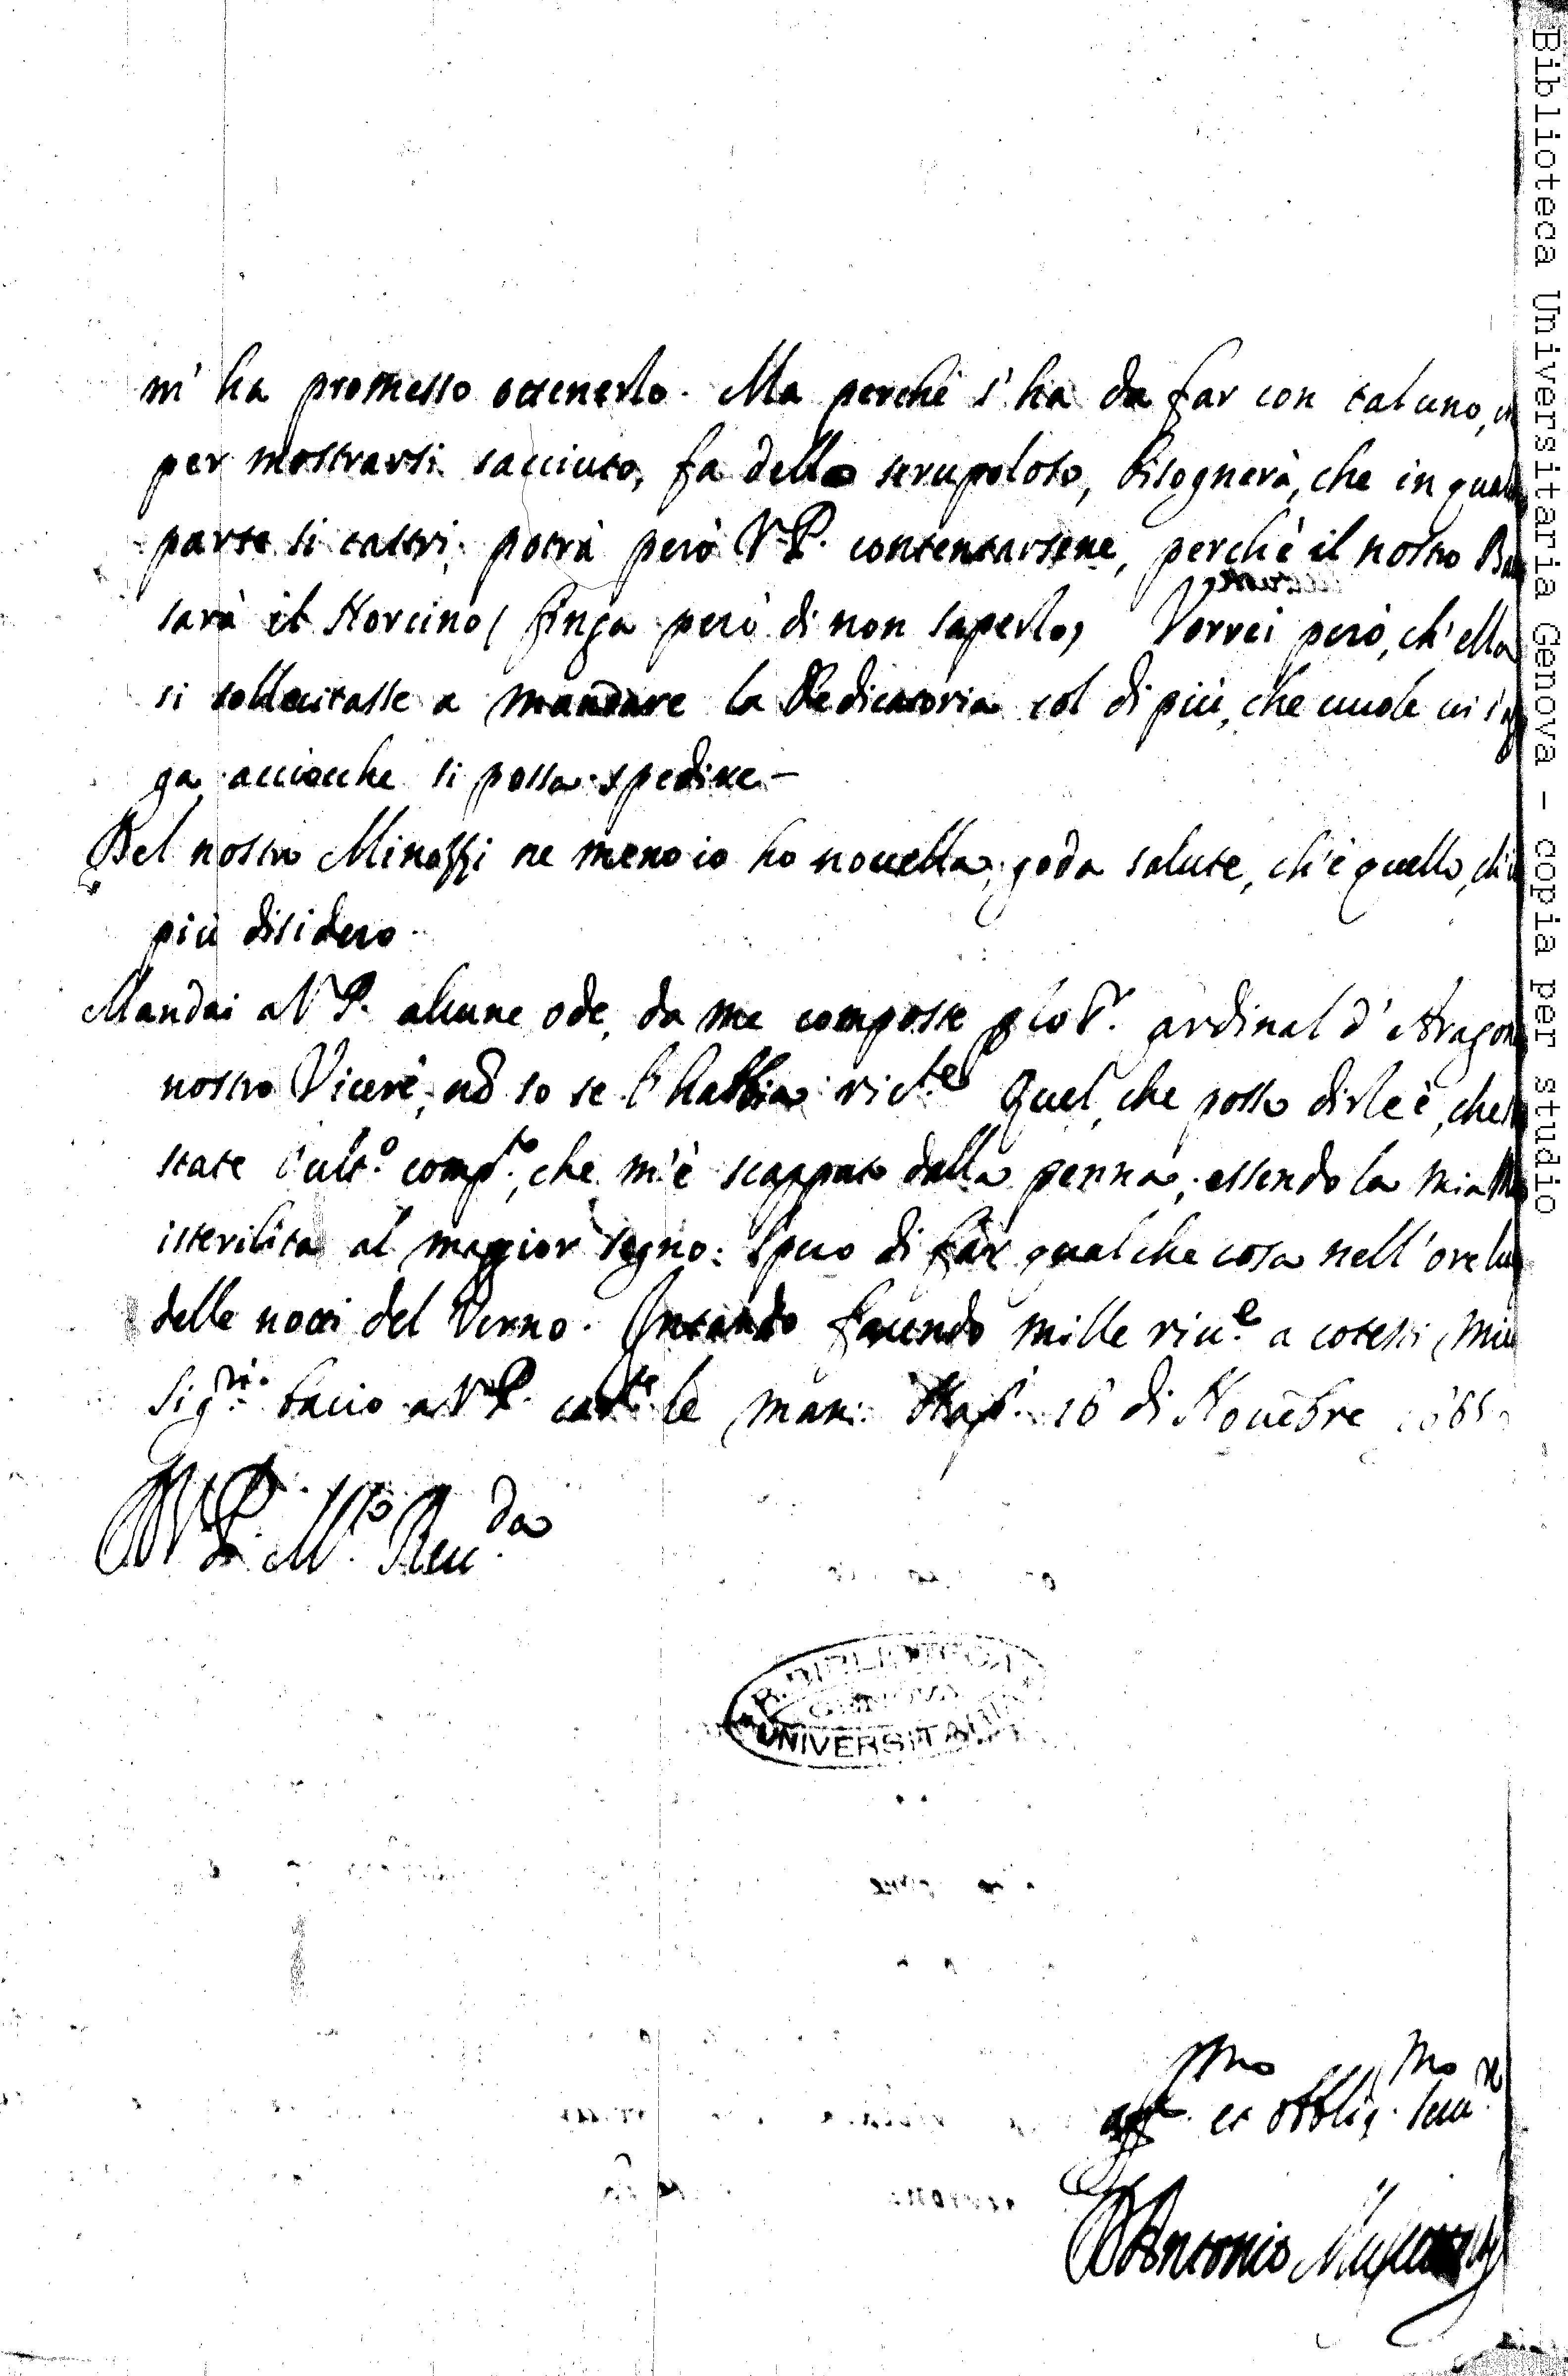 m' ha promesso ottenerlo. Ma perche s' ha da far con taluno,
per mostrarsi sacciuto, fa dello scrupoloso, bisognerà, che in
parte si castri; potrà però V. P. contentarsene, perchè il nostro
sarà il Norcino ( finga però di non saperlo) Vorrei però, ch' ella
si sollecitasse a mandare la Dedicatoria col di più, che uuole ui
ga acciocche si possa spedire.-
Del nostro Minozzi ne meno io ho nouella; goda salute, ch' è quello,
più disidero.
Mandai a V. P. alcune ode, da me composte ardinal d' Aragon
nostro Vicerè; nō so se l' habbia ric.te Quel, che posso dirle è, che
state l' ult.o comp.to, che m' è scappato dalla penna; essendo la mia
isterilita al maggior segno: Spero di far qualche cosa nell' ore
delle notti del Verno. Intando facendo mille riu.e a cotesti miei
Sig.ri bacio a V. P. le mani. Nap. 16 di Nouēbre
D V. P. M.to Reu.da
R. BIBLIOTECA
GENOVA
UNIVERSITARIA
aff.mo et obblig.mo seru.re
D Antonio
Biblioteca Universitaria Genova - copia per studio